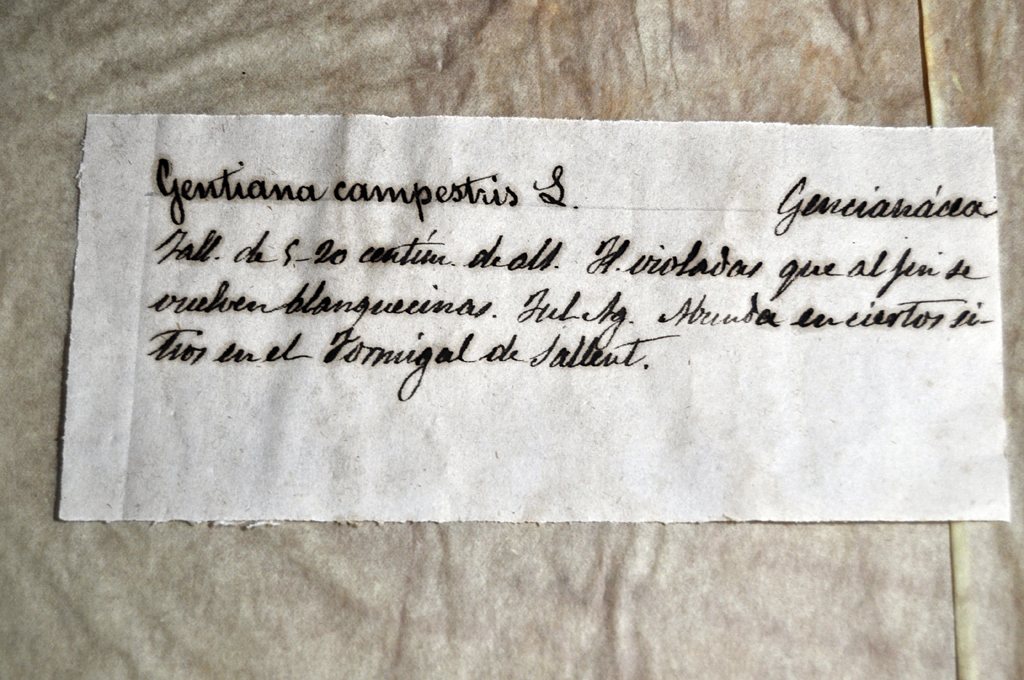 Gentiana campestris L. Gencianácea
Tall. de 5-20 centím. de alt. Fl. violadas que al fin se
vuelven blanquecinas. Jul. Ag. Abunda en ciertos si-
tios en el Formigal de Sallent.